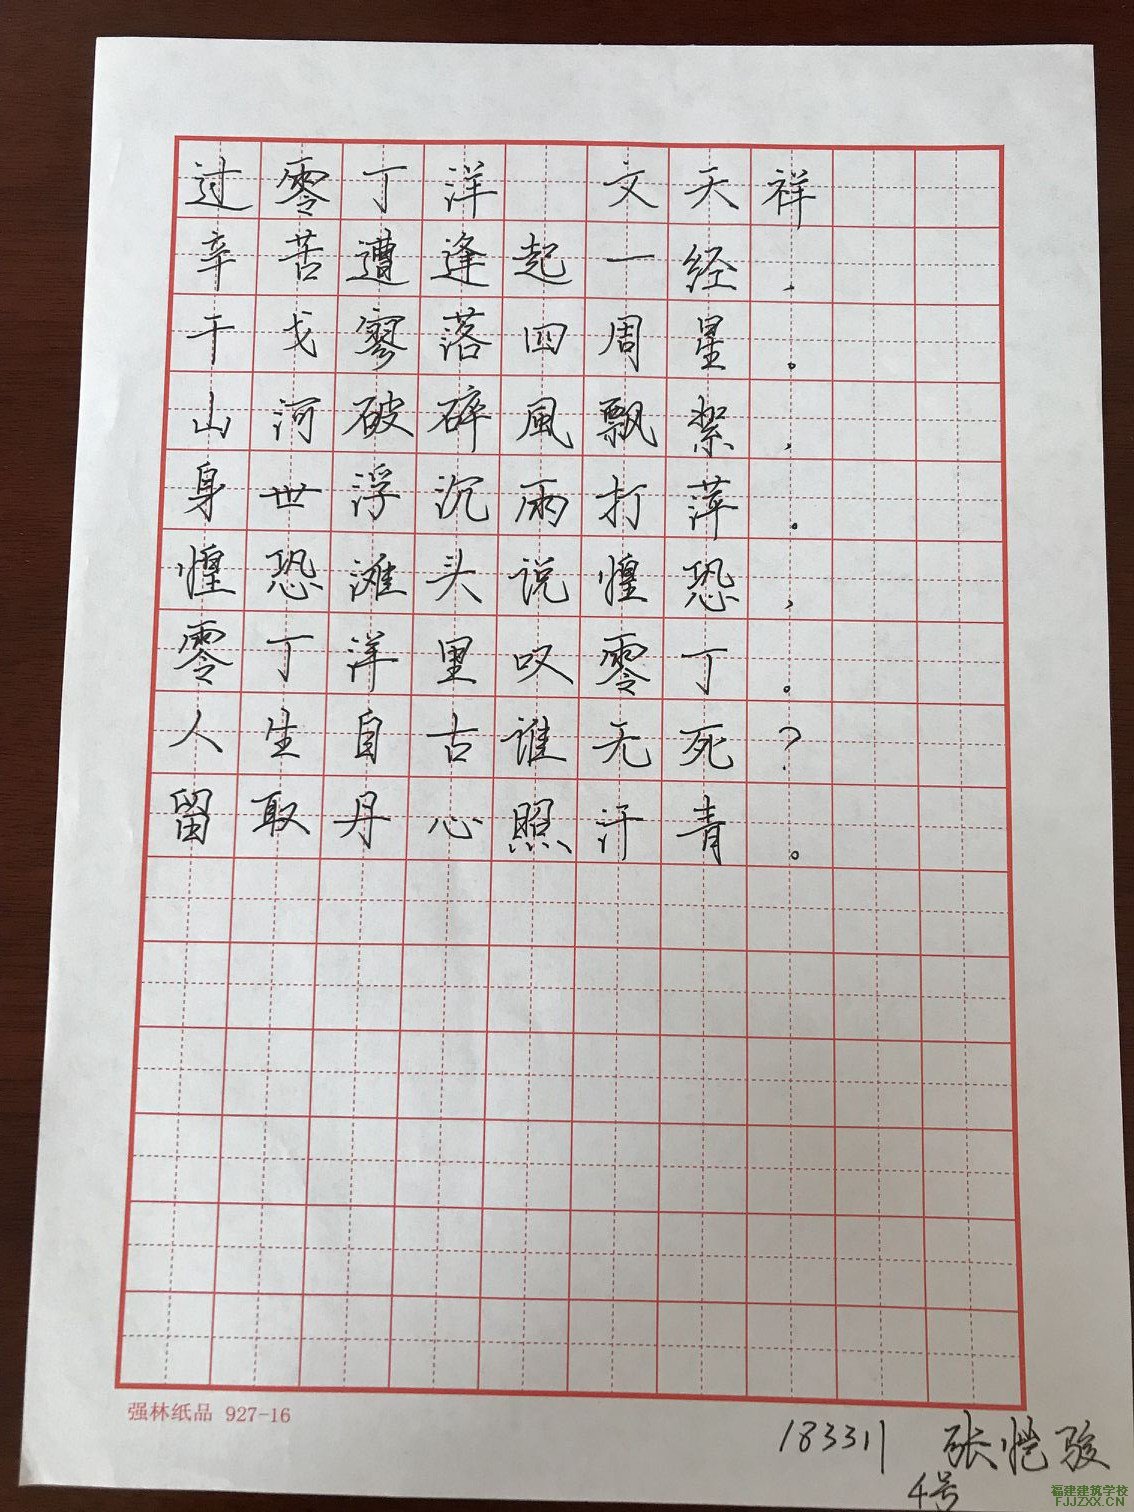 过零丁洋 文天祥
辛苦遭逢起一经，
干戈寥落四周星。
山河破碎風飘絮，
身世浮沉雨打萍。
惶恐滩头说惶恐，
零丁洋里叹零丁。
人生自古谁无死？
留取丹心照汗青。
强林纸品 927-16
183311 张恺骏
4号
福建建筑学校
FJJZXX.CN